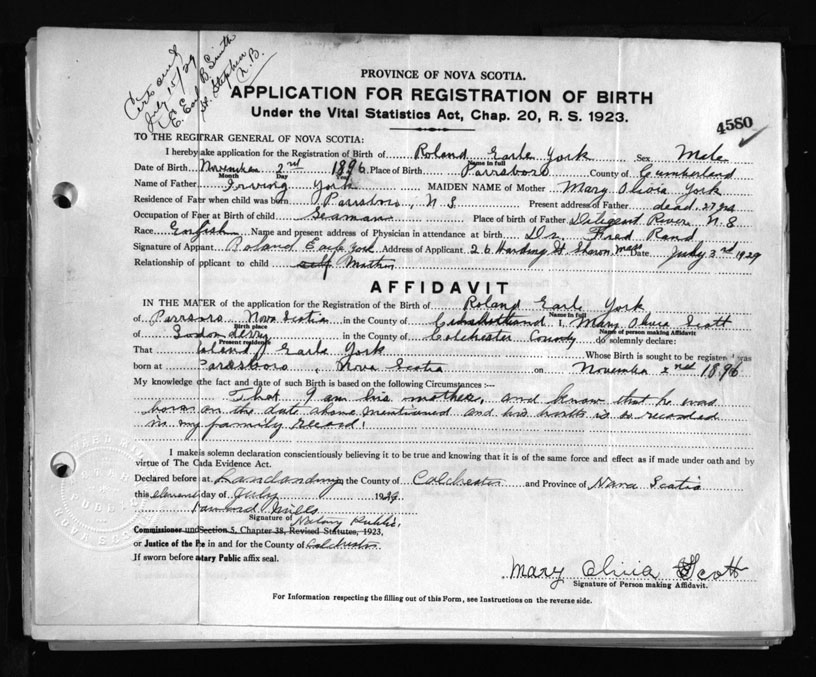 Cert and
July 15/29
E. Earl B Smith
St. Stephen
N. B.
PROVINCE OF NOVA SCOTIA.
APPLICATION FOR REGISTRATION OF BIRTH
Under the Vital Statistics Act, Chap. 20, R. S. 1923.
4580
TO THE REGISTRAR GENERAL OF NOVA SCOTIA:
I hereby ake application for the Registration of Birth of Roland Earle York Sex Male
Name in full
Date of Birth November 2nd 1896 Place of Birth Parrsboro County of Cumberland
Month Day Year
Name of Father Irving York MAIDEN NAME of Mother Mary Olivia York
Residence of Fater when child was born Parrsboro, N S Present address of Father dead 27 yrs
Occupation of Faer at Birth of child Seaman Place of birth of Father Diligent River N. S
Race English Name and present address of Physician in attendance at birth Dr. Fred Rand
Signature of Appant Roland Earle York Address of Applicant 26 Harding St Sharon, Mass Date July 3rd 1929
Relationship of pplicant to child self Mother
AFFIDAVIT
IN THE MATER of the application for the Registration of the Birth of Roland Earle York
Name in full
of Parrsboro Nova Scotia in the County of Cumberland I, Mary Olivia Scott
Birth place Name of person making Affidavit
of Londonderry in the County of Colchester County do solemnly declare:
Present residence
That Roland Earle York Whose Birth is sought to be register was
born at Parrsboro, Nova Scotia on November 2nd 1896
My knowledge the fact and date of such Birth is based on the following Circumstances :—
That I am his mother, and know that he was
born on the date above mentioned and his birth is so recorded
in my family record!
I make is solemn declaration conscientiously believing it to be true and knowing that it is of the same force and effect as if made under oath and by
virtue of The Cada Evidence Act.
Declared before at Londonderry the County of Colchester and Province of Nova Scotia
this eleventh day of July 1929.
Mills
Signature of Notary Public,
Commissioner und Section 5, Chapter 38, Revised Statutes, 1923,
or Justice of the Pe in and for the County of Colchester
If sworn before otary Public affix seal.
Mary Olivia Scott
Signature of Person making Affidavit.
For Information respecting the filling out of this Form, see Instructions on the reverse side.